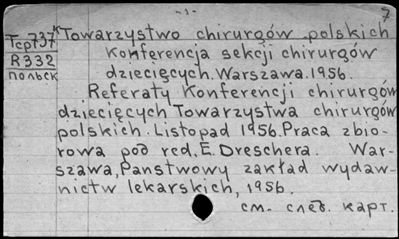 -1- 7
Tcp737к Towarzystwo chirurgów polskich
R332 Konferencja sekcji chirurgów
польск dziecięcych. Warszawa. 1956.
Referaty Konferencji chirurgów
dziecięcych Towarzystwa chirurgów
polskich. Listopad 1956. Praca zbio-
rowa pod red. E. Dreschera. War-
szawa, Panstwowy zakład wydaw-
nictw lekarskich, 1956.
см. след. карт.